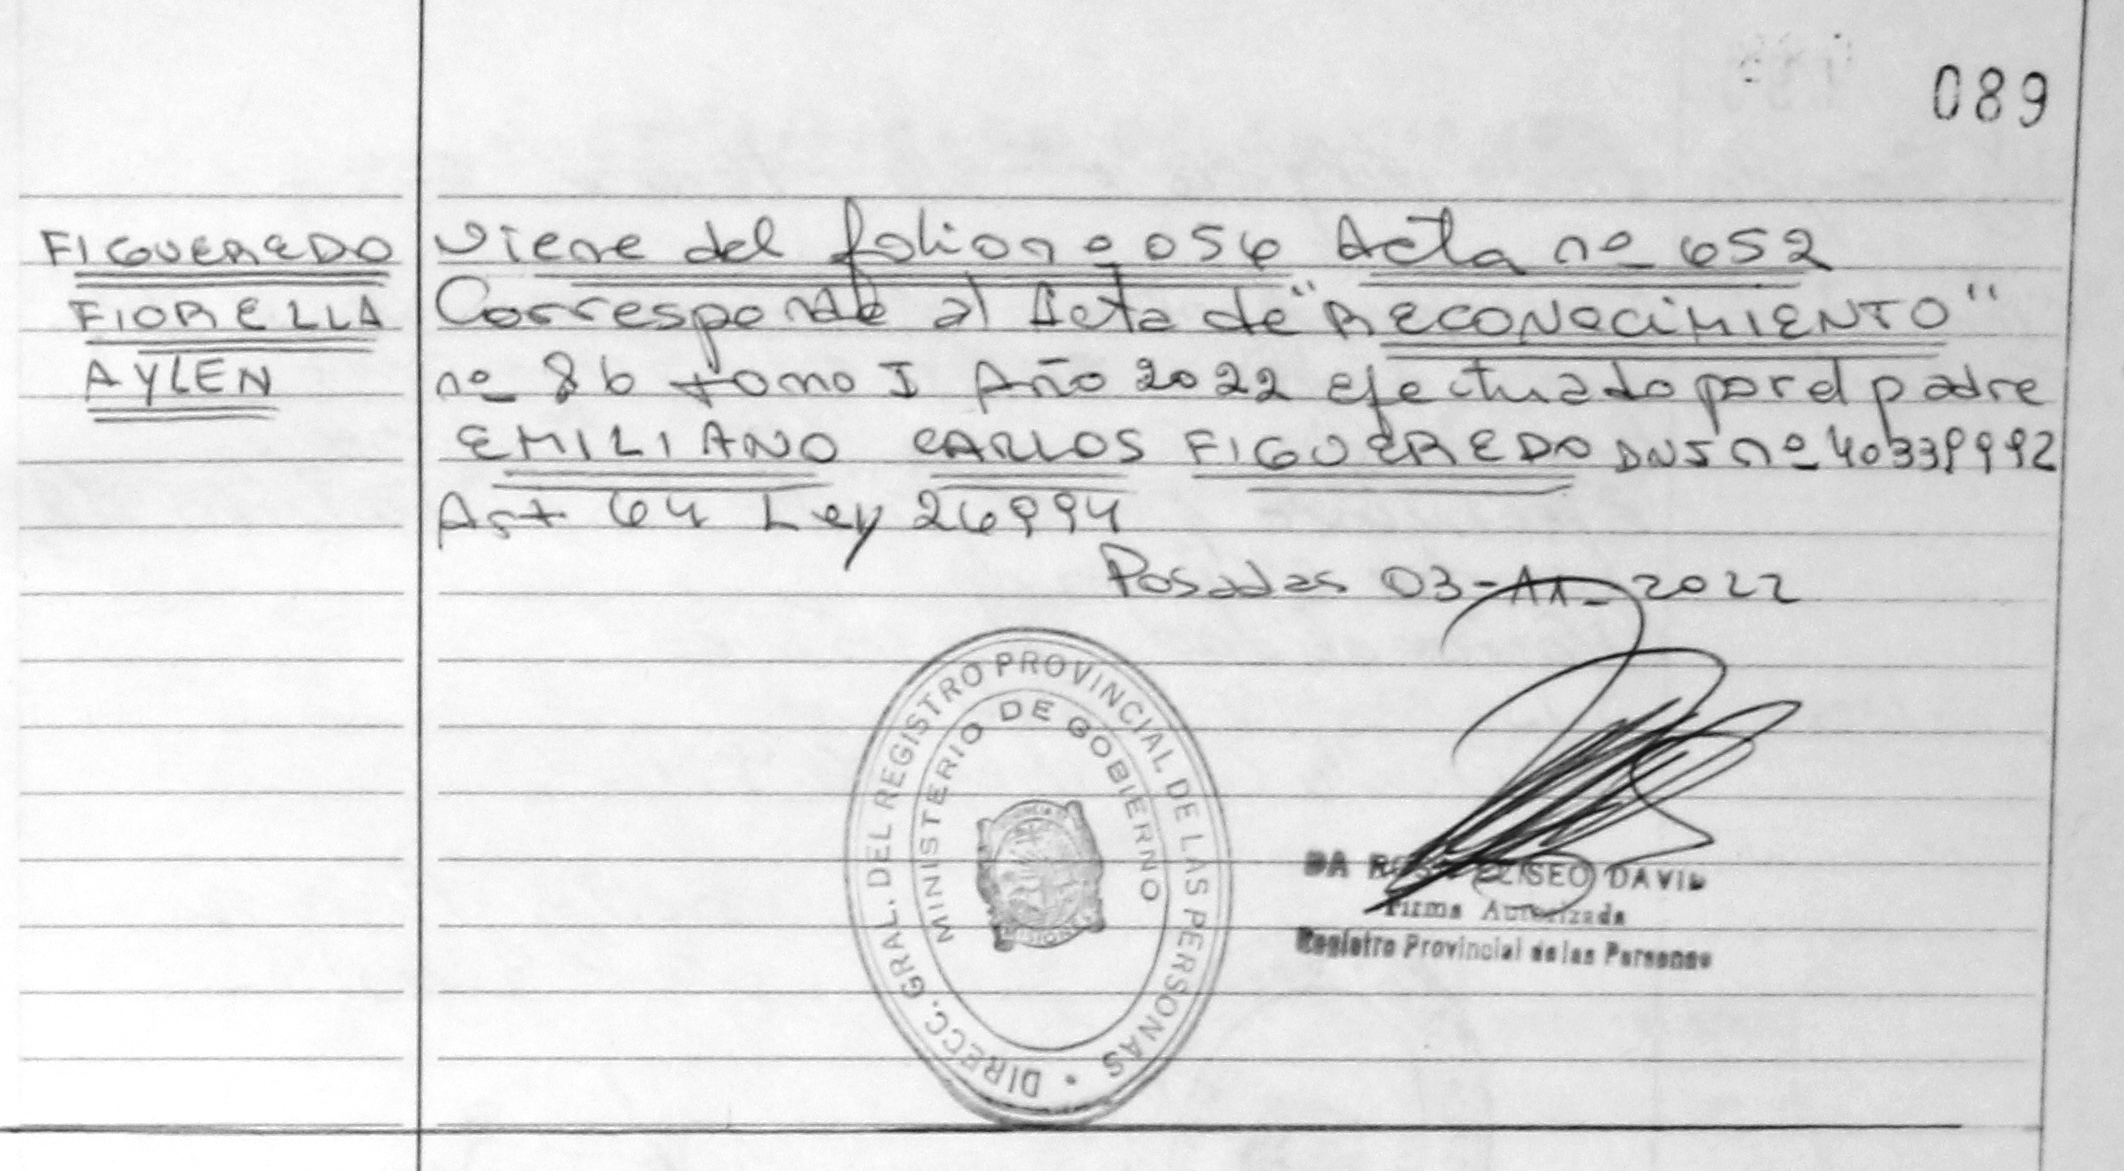 089
FIGUEREDO
FIORELLA
AYLEN
Viene del folio nº 056 Acta nº 652
Corresponde al Acta de "RECONOCIMIENTO"
nº 86 tomo I Año 2022 efectuado por el padre
EMILIANO CARLOS FIGUEREDO DNI nº 40339992
Art 64 Ley 26994
Posadas 03-11-2022
DIRECC. GRAL. DEL REGISTRO PROVINCIAL DE LAS PERSONAS
MINISTERIO DE GOBIERNO
DA ROSA ELISEO DAVID
Firma Autorizada
Registro Provincial de las Personas